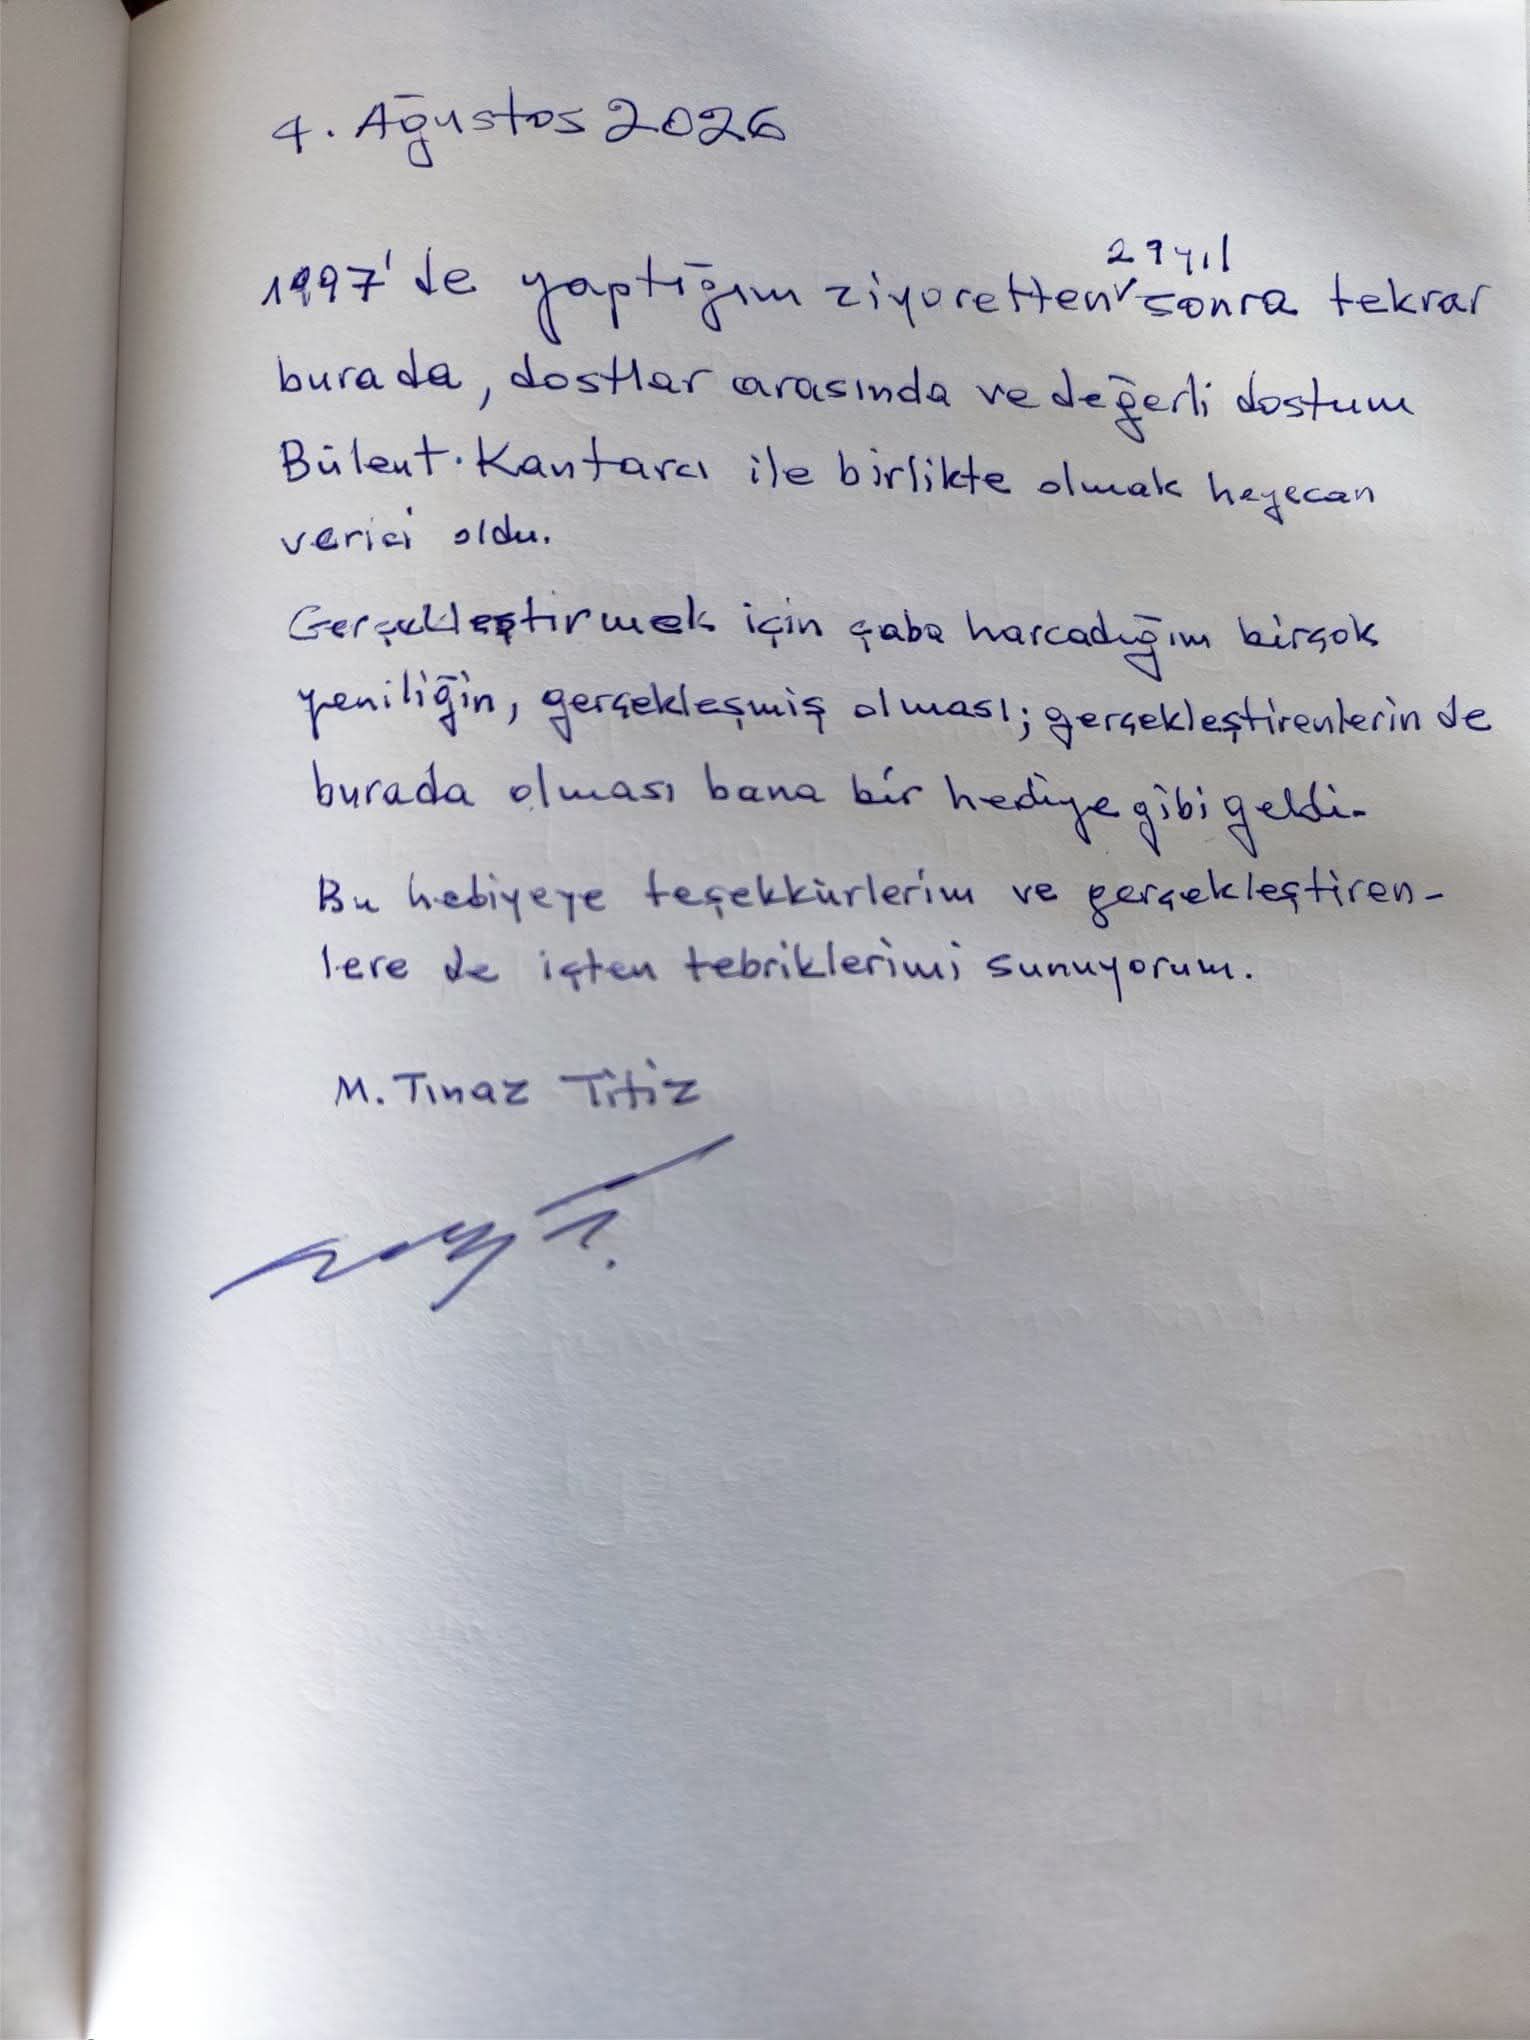 4. Ağustos 2026
29 yıl
1997'de yaptığım ziyaretten sonra tekrar
burada, dostlar arasında ve değerli dostum
Bülent Kantarcı ile birlikte olmak heyecan
verici oldu.
Gerçekleştirmek için çaba harcadığım birçok
yeniliğin, gerçekleşmiş olması; gerçekleştirenlerin de
burada olması bana bir hediye gibi geldi.
Bu hediyeye teşekkürlerim ve gerçekleştiren-
lere de içten tebriklerimi sunuyorum.
M. Tınaz Titiz